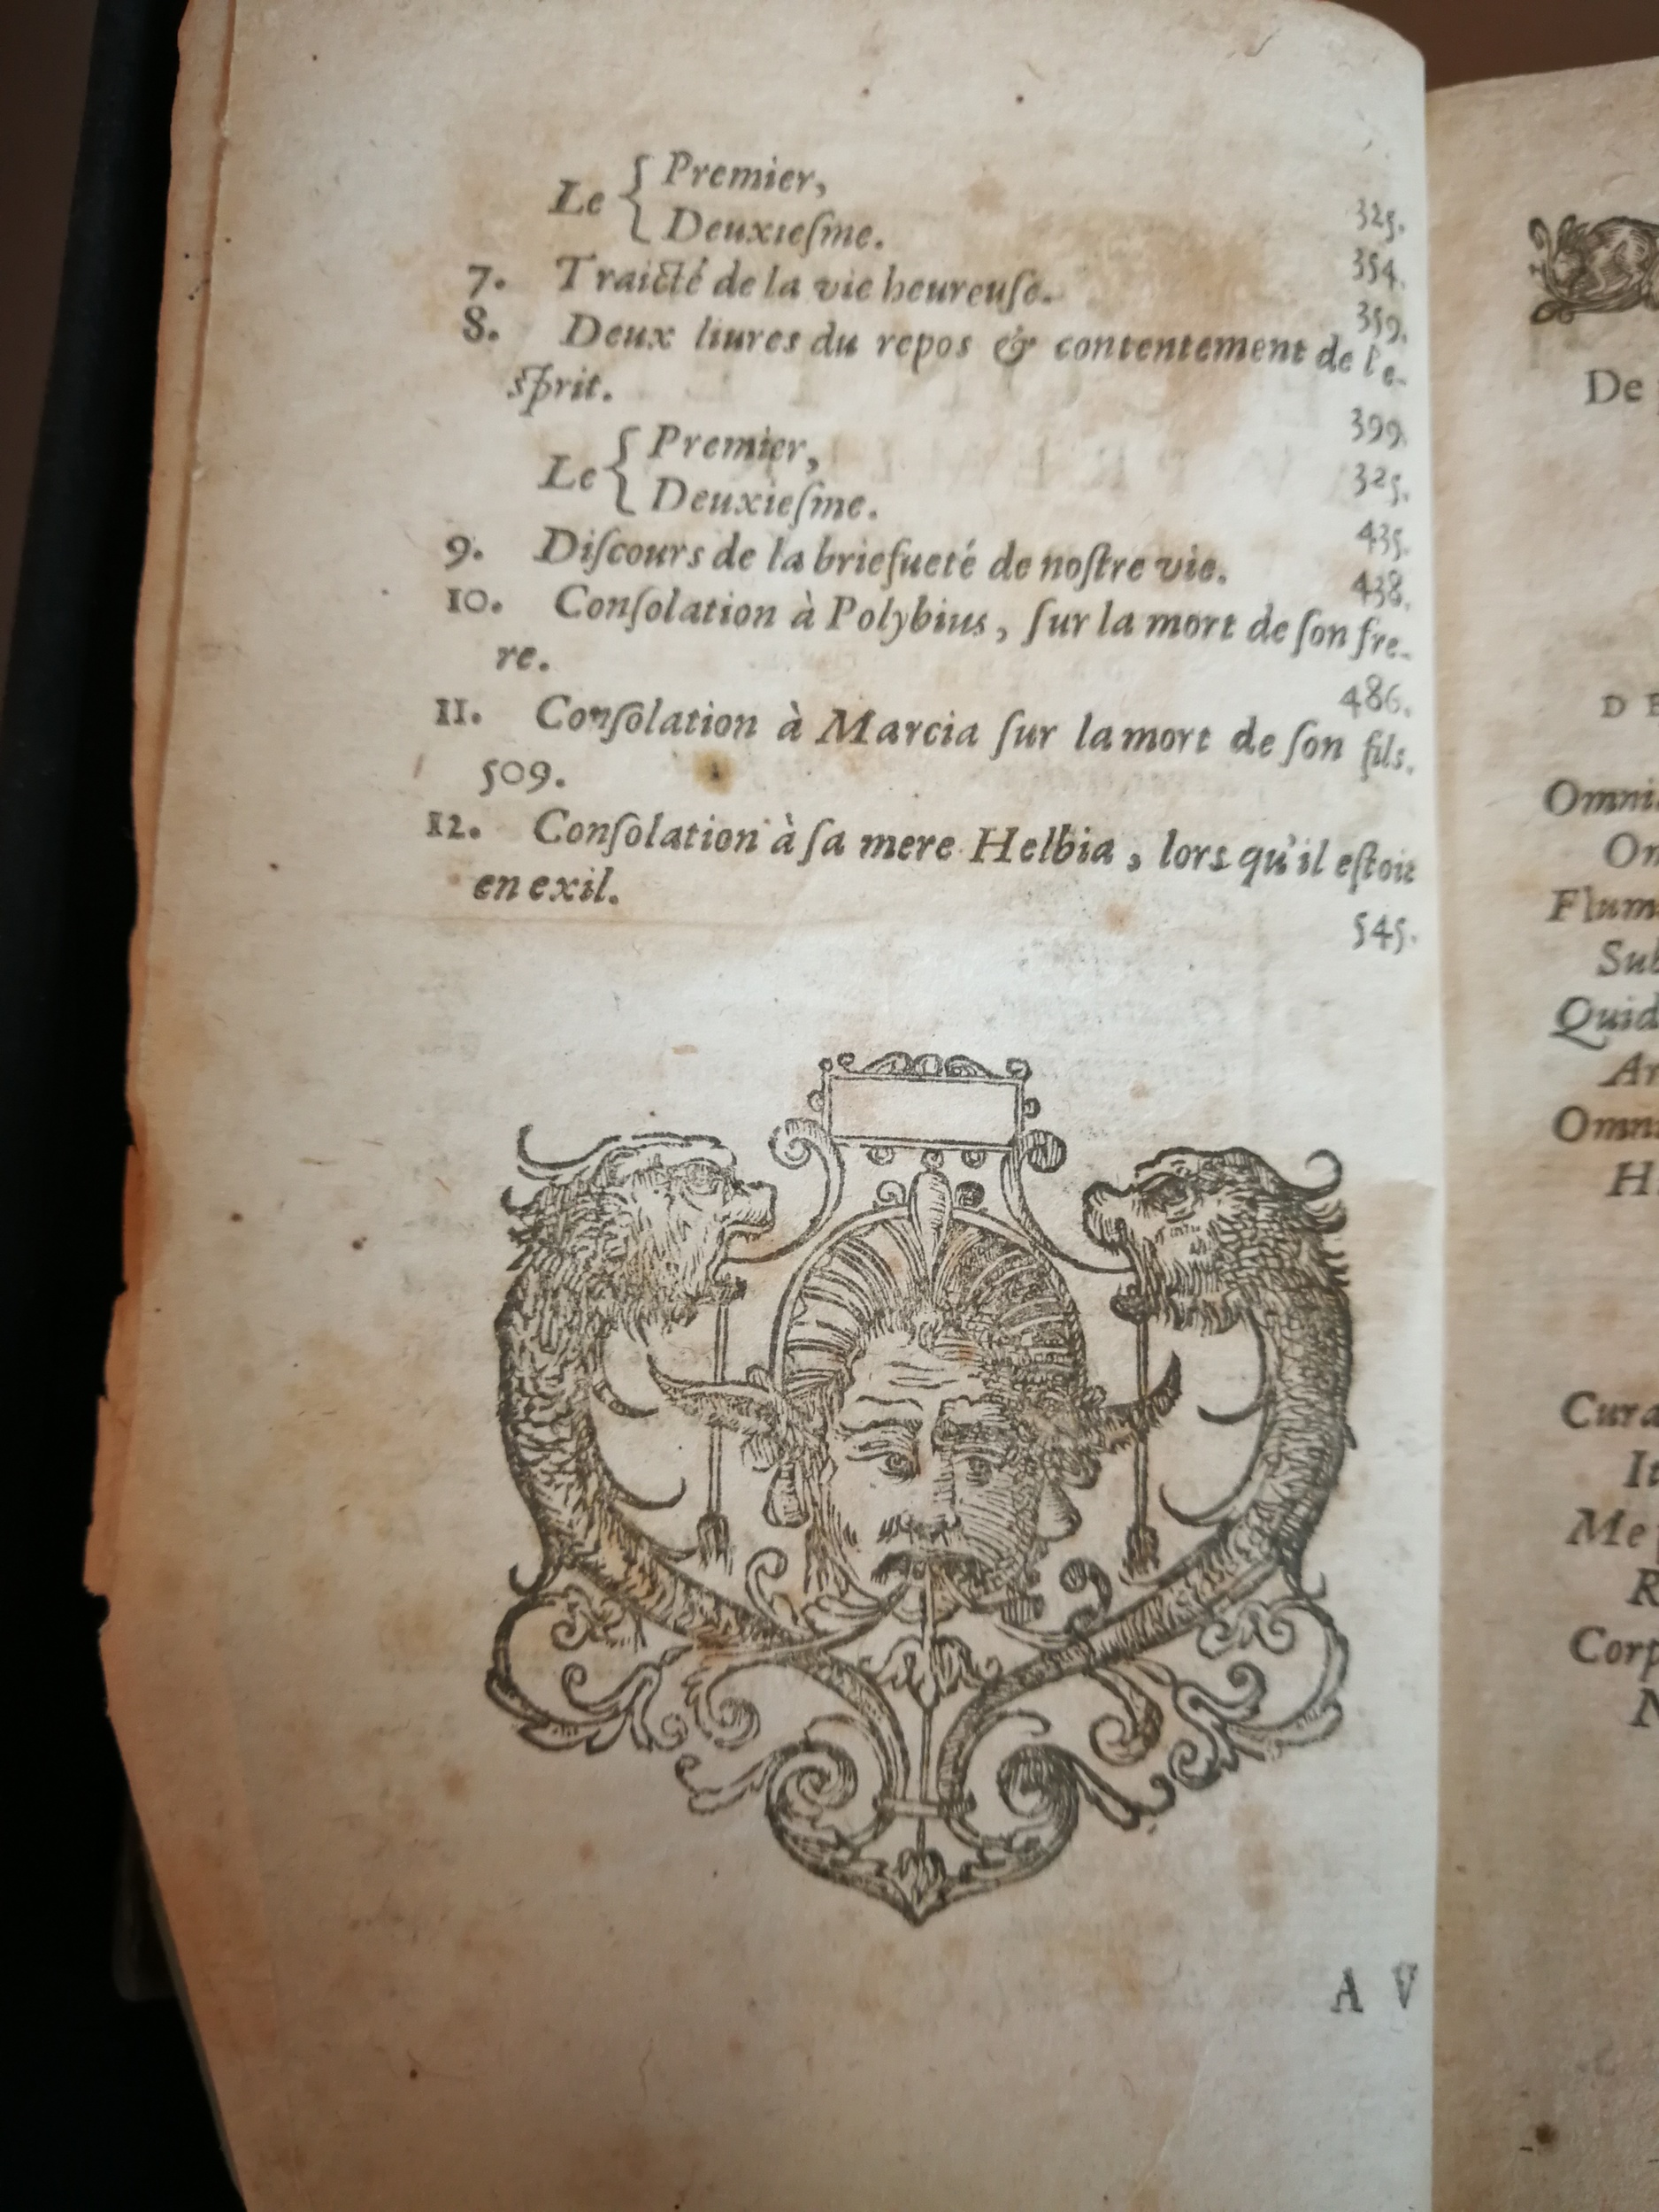 Le { Premier, 325.
Deuxieſme. 354.
7. Traicté de la vie heureuſe. 359.
8. Deux liures du repos & contentement de l'e-
ſprit. 399.
Le { Premier, 325.
Deuxieſme. 435.
9. Diſcours de la briefueté de noſtre vie. 438.
10. Conſolation à Polybius, ſur la mort de ſon fre-
re. 486.
11. Conſolation à Marcia ſur la mort de ſon fils.
509.
12. Conſolation à ſa mere Helbia, lors qu'il eſtoit
en exil. 545.
A V
De
DE
Omni
Om
Flum
Sub
Quid
Omn
H
Cura
It
Me
R
Corp
N